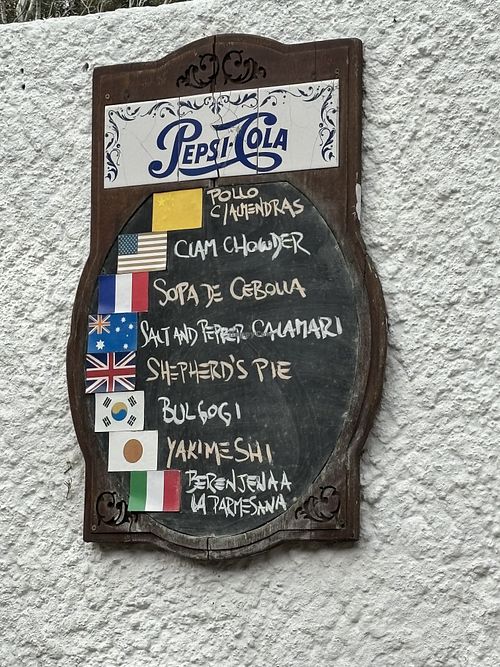 PEPSI-COLA
POLLO
C/ALMENDRAS
CLAM CHOWDER
SOPA DE CEBOLLA
SALT AND PEPPER CALAMARI
SHEPHERD'S PIE
BULGOGI
YAKIMESHI
BERENJENA A
LA PARMESANA